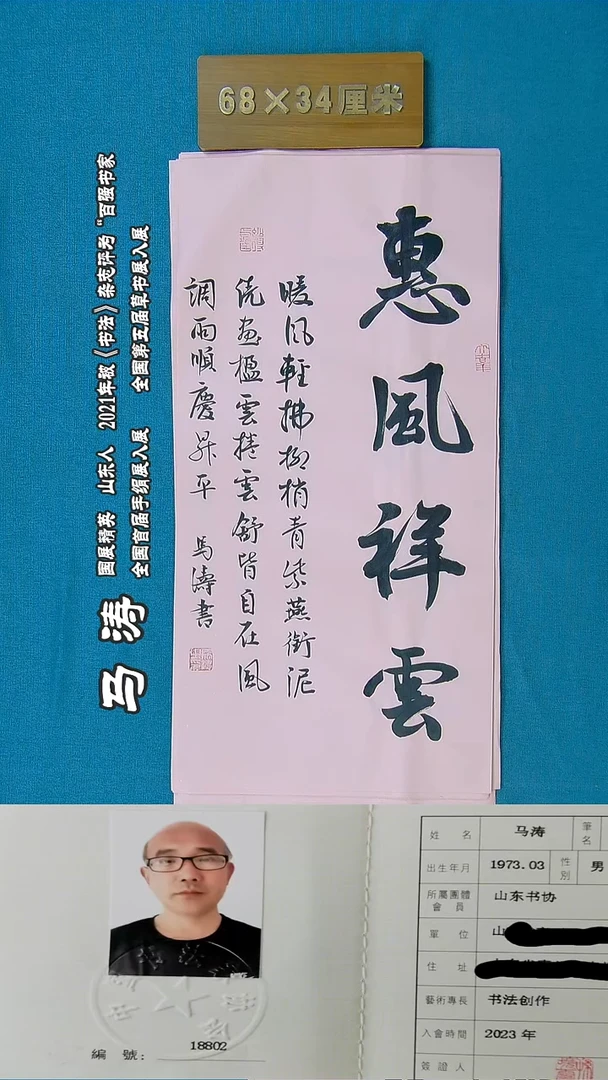 68×34厘米
惠風祥雲
暖风輕拂柳梢青紫燕銜泥
繞畫楹雲捲雲舒皆自在風
調雨順慶昇平 馬濤書
马涛
国展精英 山东人 2021年被《书法》杂志评为“百强书家
全国首届手绢展入展 全国第五届草书展入展
編號: 18802
姓名 马涛 筆名
出生年月 1973.03 性別 男
所屬團體會員 山东书协
單位 山
住址
藝術專長 书法创作
入會時間 2023年
簽證人